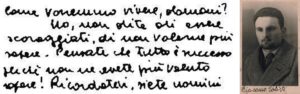 come vorremmo vivere, domani?
No, non dite di essere
scoraggiati, di non volerne più
sapere. Pensate che tutto è successo
perché non ne avete più voluto
sapere! Ricordatevi, siete uomini
Giacomo Ulivi